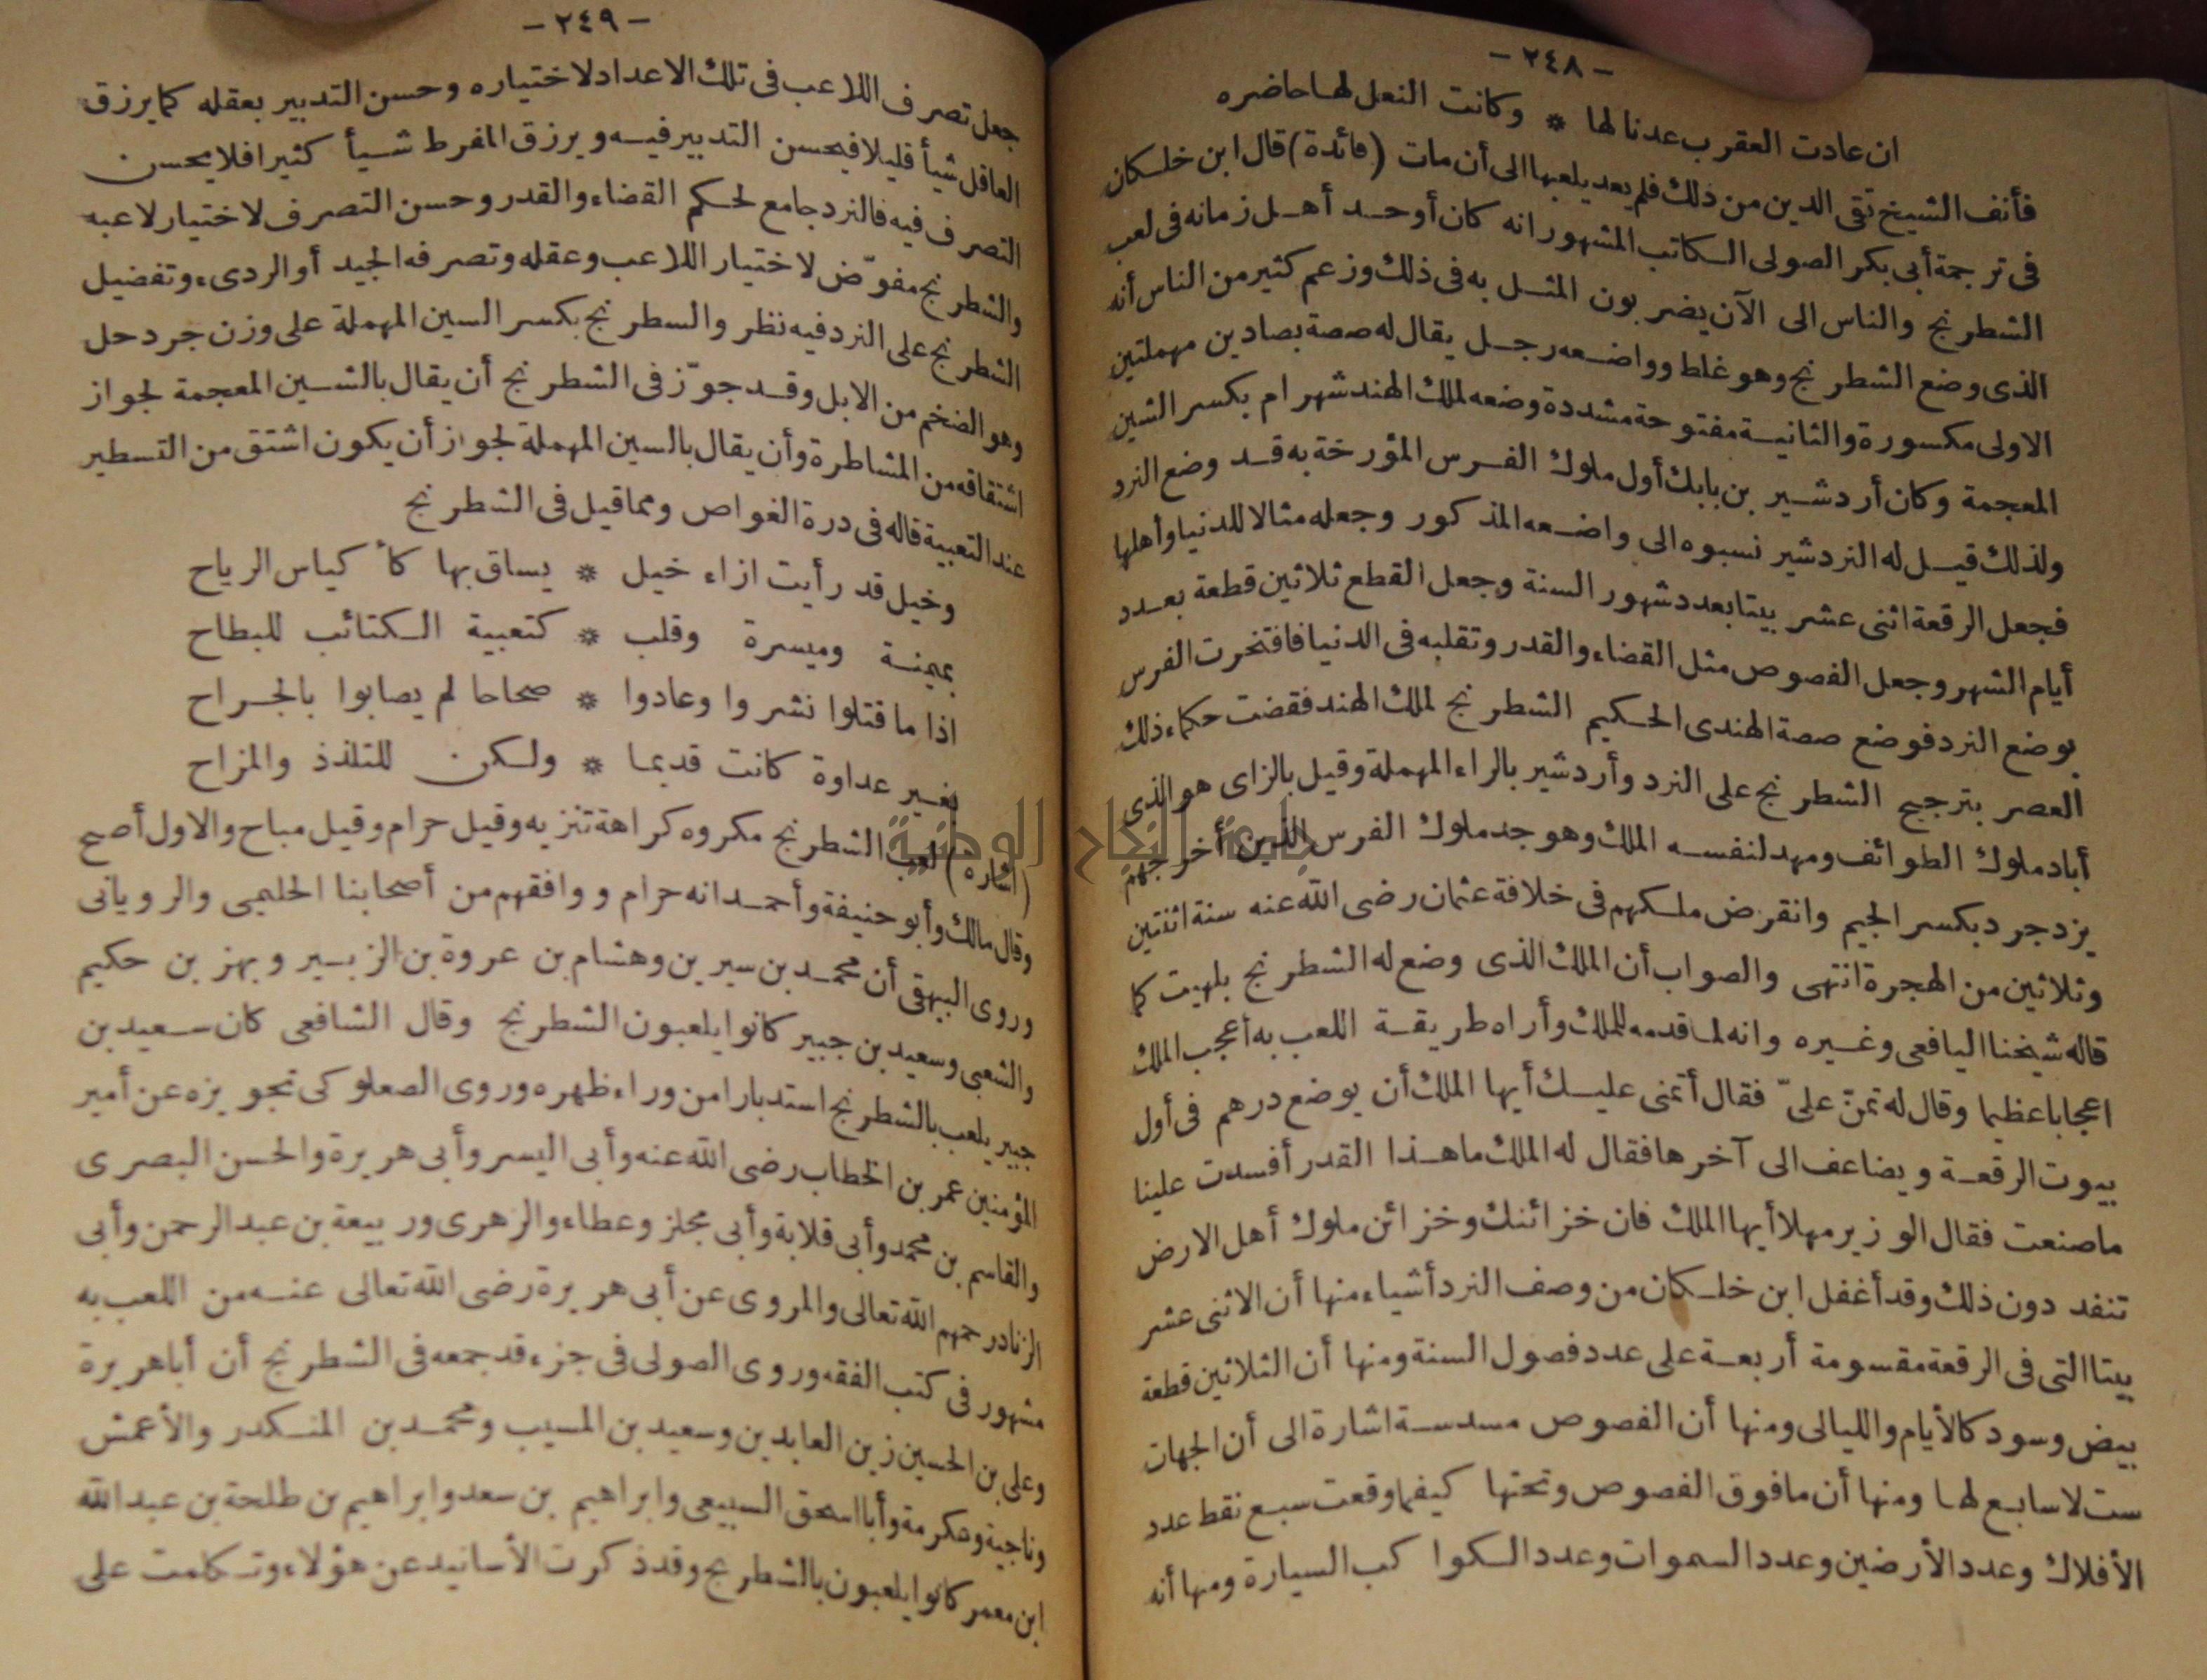 — ٢٤٨ —
ان عادت العقرب عدنا لها * وكانت النعل لها حاضره
فأنف الشيخ تقى الدين من ذلك فلم يعد يلعبها الى أن مات (فائدة) قال ابن خلكان
فى ترجمة أبى بكر الصولى الكاتب المشهور انه كان أوحد أهل زمانه فى لعب
الشطرنج والناس الى الآن يضربون المثل به فى ذلك وزعم كثير من الناس أنه
الذى وضع الشطرنج وهو غلط وواضعه رجل يقال له صصة بصادين مهملتين
الاولى مكسورة والثانية مفتوحة مشددة وضعه لملك الهند شهرام بكسر الشين
المعجمة وكان أردشير بن بابك أول ملوك الفرس المؤرخة به قد وضع النرد
ولذلك قيل له النردشير نسبوه الى واضعه المذكور وجعله مثالا للدنيا وأهلها
فجعل الرقعة اثنى عشر بيتا بعدد شهور السنة وجعل القطع ثلاثين قطعة بعدد
أيام الشهر وجعل الفصوص مثل القضاء والقدر وتقلبه فى الدنيا فافتخرت الفرس
بوضع النرد فوضع صصة الهندى الحكيم الشطرنج لملك الهند فقضت حكماء ذلك
العصر بترجيح الشطرنج على النرد وأردشير بالراء المهملة وقيل بالزاى هو الذى
أباد ملوك الطوائف ومهد لنفسه الملك وهو جد ملوك الفرس الذين أخرجهم
يزدجرد بكسر الجيم وانقرض ملكهم فى خلافة عثمان رضى الله عنه سنة اثنتين
وثلاثين من الهجرة انتهى والصواب أن الملك الذى وضع له الشطرنج بلهيت كما
قاله شيخنا اليافعى وغيره وانه لما قدمه للملك وأراه طريقة اللعب به أعجب الملك
اعجابا عظيما وقال له تمنّ علىّ فقال أتمنى عليك أيها الملك أن يوضع درهم فى أول
بيوت الرقعة ويضاعف الى آخرها فقال له الملك ما هذا القدر أفسدت علينا
ما صنعت فقال الوزير مهلا أيها الملك فان خزائنك وخزائن ملوك أهل الارض
تنفد دون ذلك وقد أغفل ابن خلكان من وصف النرد أشياء منها أن الاثنى عشر
بيتا التى فى الرقعة مقسومة أربعة على عدد فصول السنة ومنها أن الثلاثين قطعة
بيض وسود كالأيام والليالى ومنها أن الفصوص مسدسة اشارة الى أن الجهات
ست لا سابع لها ومنها أن مافوق الفصوص وتحتها كيفما وقعت سبع نقط عدد
الأفلاك وعدد الأرضين وعدد السموات وعدد الكواكب السيارة ومنها أنه
— ٢٤٩ —
جعل تصرف اللاعب فى تلك الاعداد لاختياره وحسن التدبير بعقله كما يرزق
العاقل شيأ قليلا فيحسن التدبير فيه ويرزق المفرط شيأ كثيرا فلا يحسن
التصرف فيه فالنرد جامع لحكم القضاء والقدر وحسن التصرف لاختيار لاعبه
والشطرنج مفوّض لاختيار اللاعب وعقله وتصرفه الجيد أو الردىء وتفضيل
الشطرنج على النرد فيه نظر والسطرنج بكسر السين المهملة على وزن جردحل
وهو الضخم من الابل وقد جوّز فى الشطرنج أن يقال بالشين المعجمة لجواز
اشتقاقه من المشاطرة وأن يقال بالسين المهملة لجواز أن يكون اشتق من التسطير
عند التعبية قاله فى درة الغواص ومما قيل فى الشطرنج
وخيل قد رأيت ازاء خيل * يساق بها كأ كياس الرياح
بميمنة وميسرة وقلب * كتعبية الكتائب للبطاح
اذا ما قتلوا نشروا وعادوا * صحاحا لم يصابوا بالجراح
بغير عداوة كانت قديما * ولكن للتلذذ والمزاح
(اشارة) لعب الشطرنج مكروه كراهة تنزيه وقيل حرام وقيل مباح والاول أصح
وقال مالك وأبو حنيفة وأحمد انه حرام ووافقهم من أصحابنا الحليمى والرويانى
وروى البيهقى أن محمد بن سيرين وهشام بن عروة بن الزبير وبهز بن حكيم
والشعبى وسعيد بن جبير كانوا يلعبون الشطرنج وقال الشافعى كان سعيد بن
جبير يلعب بالشطرنج استدبارا من وراء ظهره وروى الصعلوكى تجويزه عن أمير
المؤمنين عمر بن الخطاب رضى الله عنه وأبى اليسر وأبى هريرة والحسن البصرى
والقاسم بن محمد وأبى قلابة وأبى مجلز وعطاء والزهرى وربيعة بن عبد الرحمن وأبى
الزناد رحمهم الله تعالى والمروى عن أبى هريرة رضى الله تعالى عنه من اللعب به
مشهور فى كتب الفقه وروى الصولى فى جزء قد جمعه فى الشطرنج أن أبا هريرة
وعلى بن الحسين زين العابدين وسعيد بن المسيب ومحمد بن المنكدر والأعمش
وناجية وعكرمة وأبا اسحق السبيعى وابراهيم بن سعد وابراهيم بن طلحة بن عبد الله
ابن معمر كانوا يلعبون بالشطرنج وقد ذكرت الأسانيد عن هؤلاء وتكلمت على
جامعة النجاح الوطنية